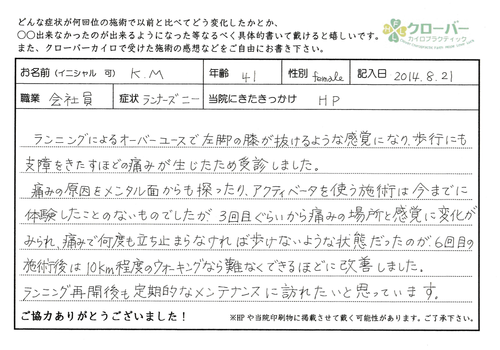 どんな症状が何回位の施術で以前と比べてどう変化したかとか、
○○出来なかったのが出来るようになった等なるべく具体的書いて戴けると嬉しいです。
また、クローバーカイロで受けた施術の感想などをご自由にお書き下さい。
クローバー
カイロプラクティック
お名前 (イニシャル 可) K.M 年齢 41 性別 female 記入日 2014.8.21
職業 会社員 症状 ランナーズニー 当院にきたきっかけ HP
ランニングによるオーバーユースで左脚の膝が抜けるような感覚になり、歩行にも
支障をきたすほどの痛みが生じたため受診しました。
痛みの原因をメンタル面からも探ったり、アクティベータを使う施術は今までに
体験したことのないものでしたが 3回目ぐらいから痛みの場所と感覚に変化が
みられ、痛みで何度も立ち止まらなければ歩けないような状態だったのが 6回目の
施術後は10km程度のウォーキングなら難なくできるほどに改善しました。
ランニング再開後も定期的なメンテナンスに訪れたいと思っています。
ご協力ありがとうございました！ ※HPや当院印刷物に掲載させて戴く可能性があります。ご了承下さい。